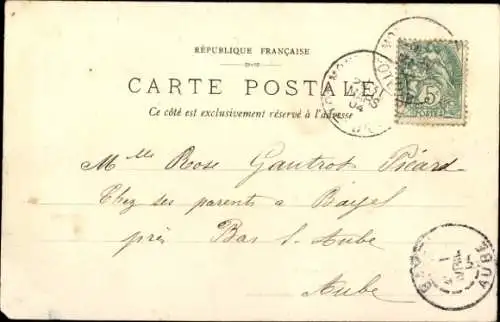 RÉPUBLIQUE FRANÇAISE
CARTE POSTALE
Ce côté est exclusivement réservé à l'adresse
5c
POSTES
MARS
04
Mlle Rose Gautrot Picard
Chez ses parents à Bayel
près Bar s. Aube
Aube
AVRIL
AUBE